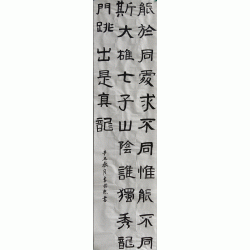 能於同處求不同惟能不同
斯大雄七子山陰誰獨秀龍
門跳出是真龍
辛丑秋月